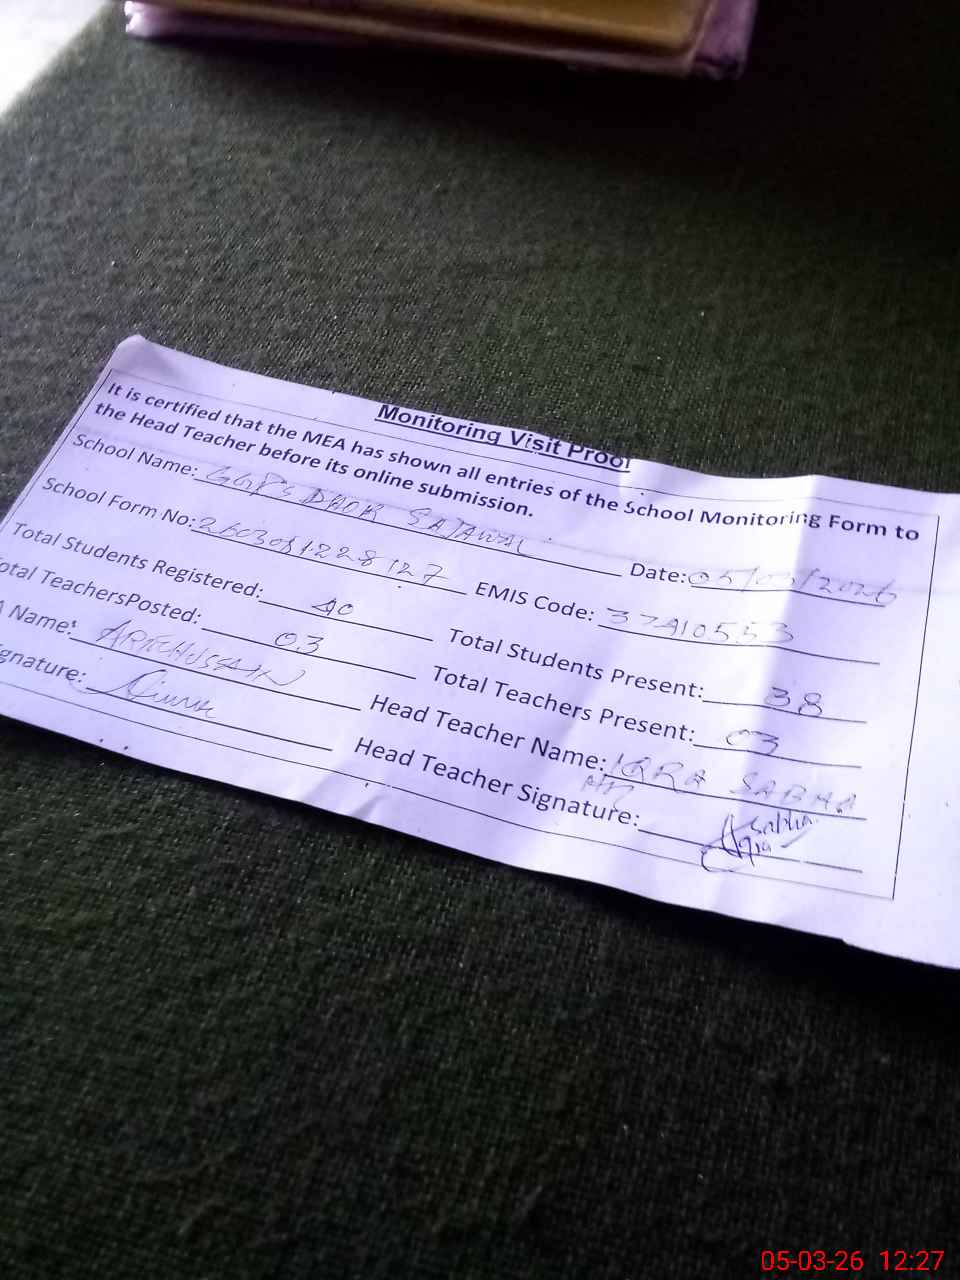 Monitoring Visit Proof
It is certified that the MEA has shown all entries of the School Monitoring Form to
the Head Teacher before its online submission.
School Name: GGPS DHOK SAJAWAL Date: 05/03/2026
School Form No: EMIS Code: 37410553
Total Students Registered: 40 Total Students Present: 38
otal TeachersPosted: 03 Total Teachers Present: 03
A Name: Head Teacher Name: IQRA SABHA
gnature: Head Teacher Signature:
05-03-26 12:27